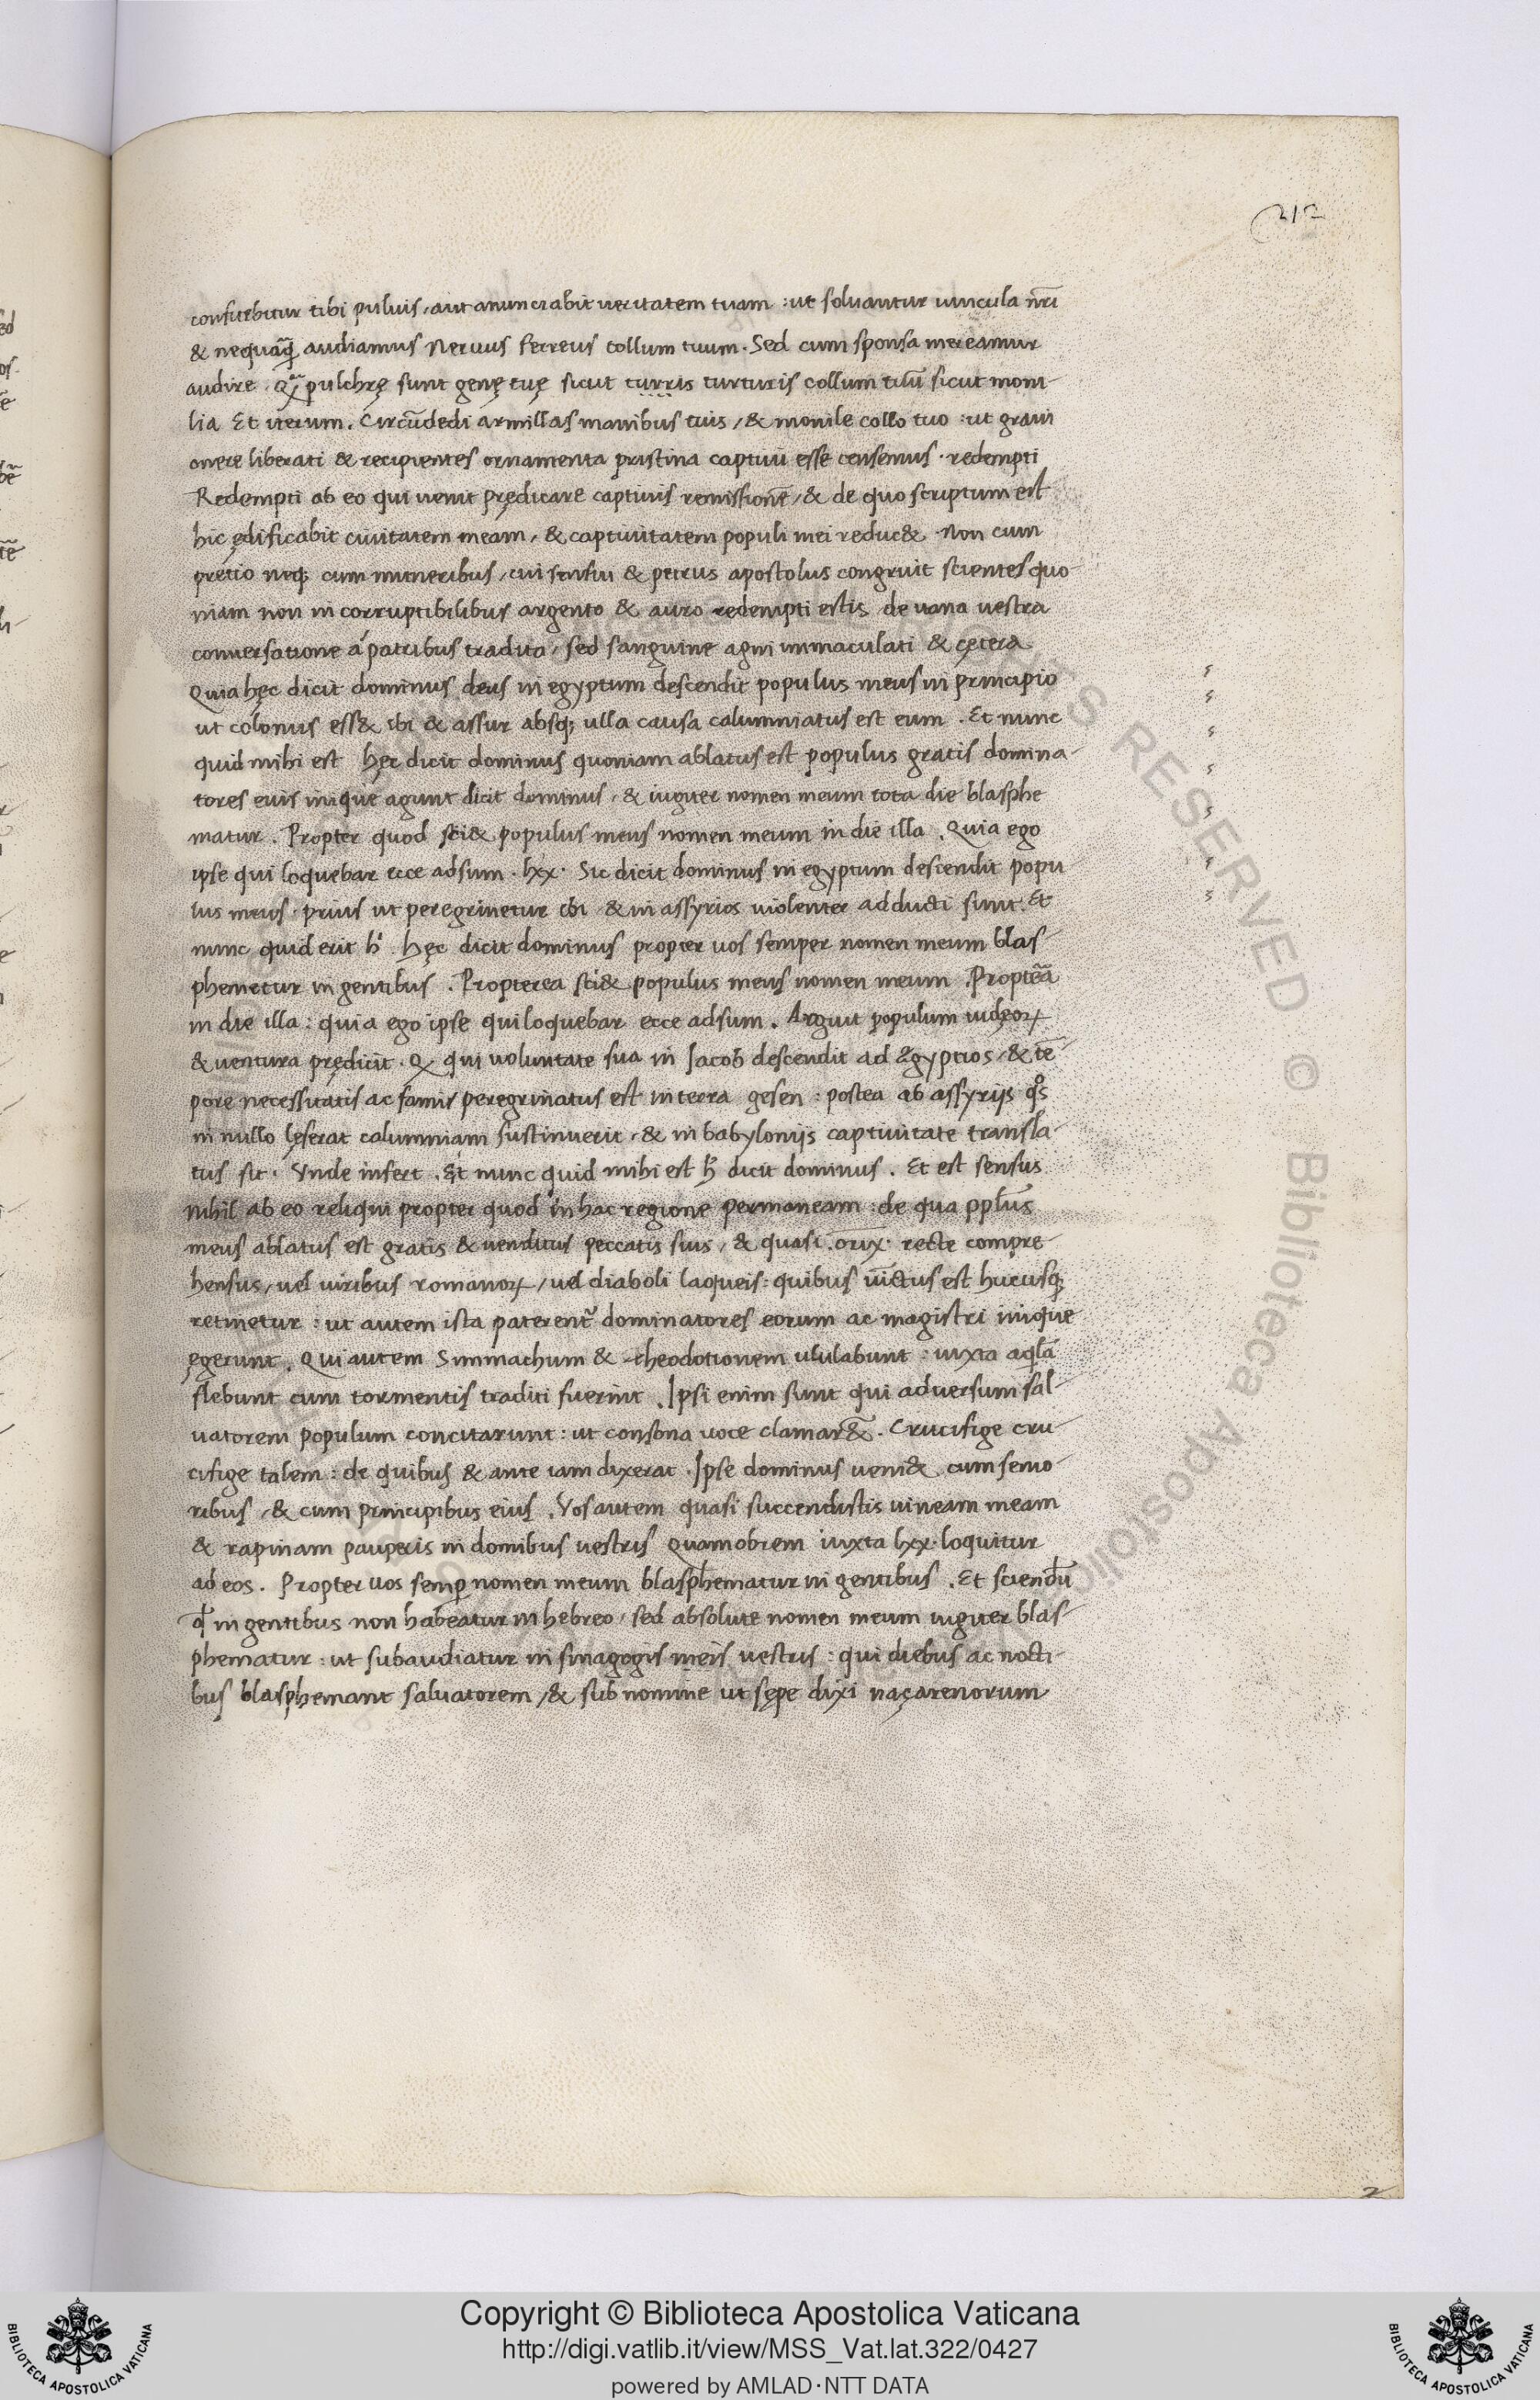 212
confitebitur tibi puluis, aut anunciabit ueritatem tuam : ut soluantur uincula nr̃i
& nequaq̃ audiamus Neruus ferreus collum tuum. Sed cum sponsa mereamur
audire. pulchrę sunt genę tuę sicut turris turturis collum tuũ sicut moni-
lia Et iterum. Circũdedi armillas manibus tuis, & monile collo tuo : ut graui
onere liberati & recipientes ornamenta pristina captiui esse censemus. redempti
Redempti ab eo qui uenit prędicare captiuis remissionẽ, & de quo scriptum est
hic ędificabit ciuitatem meam, & captiuitatem populi mei reduc&. Non cum
pretio neq; cum muneribus, cui sensui & petrus apostolus congruit scientes quo-
niam non in corruptibilibus argento & auro redempti estis de uana uestra
conuersatione á patribus tradita, sed sanguine agni immaculati & cętera
Quia hęc dicit dominus deus in egyptum descendit populus meus in principio
ut colonus ess& ibi & assur absq; ulla causa calumniatus est eum. Et nunc
quid mihi est hęc dicit dominus quoniam ablatus est populus gratis domina-
tores eius inique agunt dicit dominus, & iugiter nomen meum tota die blasphe
matur. Propter quod sci& populus meus nomen meum in die illa. Quia ego
ipse qui loquebar ecce adsum. lxx. Sic dicit dominus in egyptum descendit popu
lus meus prius ut peregrinetur ibi & in assyrios uiolenter adducti sunt. Et
nunc quid erit h' hęc dicit dominus propter uos semper nomen meum blas-
phemetur in gentibus. Propterea sci& populus meus nomen meum. Proptẽa
in die illa : quia ego ipse qui loquebar ecce adsum. Arguit populum iudęoꝝ
& uentura prędicit. Qꝫ qui uoluntate sua in Jacob descendit ad Ęgyptios, & tẽ-
pore necessitatis ac famis peregrinatus est in terra gesen : postea ab assyrijs qͦs
in nullo lęserat calumniam sustinuerit, & in babylonijs captiuitate transla-
tus sit. Vnde infert. Et nunc quid mihi est h̃ dicit dominus. Et est sensus
nihil ab eo reliqui propter quod in hac regione permaneam : de qua pp̃lus
meus ablatus est gratis & uenditus peccatis suis, & quasi. orix. recte compre-
hensus, uel uiribus romanoꝝ, uel diaboli laqueis : quibus uĩctus est hucusq;
retinetur : ut autem ista paterent̃ dominatores eorum ac magistri inique
ęgerunt. Qui autem Simmachum & theodotionem ululabunt : iuxta aq̃la
flebunt cum tormentis traditi fuerint. Ipsi enim sunt qui aduersum sal-
uatorem populum concitarunt : ut consona uoce clamar&̃. Crucifige cru-
cifige talem : de quibus & ante iam dixerat. Ipse dominus ueni& cum senio-
ribus, & cum principibus eius. Vos autem quasi succendistis uineam meam
& rapinam pauperis in domibus uestris Quamobrem iuxta lxx. loquitur
ad eos. Propter uos semꝑ nomen meum blasphematur in gentibus. Et sciendũ
ꝙ in gentibus non habeatur in hebreo, sed absolute nomen meum iugiter blas-
phematur : ut subaudiatur in sinagogis meis uestris : qui diebus ac nocti-
bus blasphemant saluatorem, & sub nomine ut sępe dixi naçarenorum
RIGHTS RESERVED © Biblioteca Apostolica
Copyright © Biblioteca Apostolica Vaticana
http://digi.vatlib.it/view/MSS_Vat.lat.322/0427
powered by AMLAD·NTT DATA
BIBLIOTECA APOSTOLICA VATICANA
BIBLIOTECA APOSTOLICA VATICANA